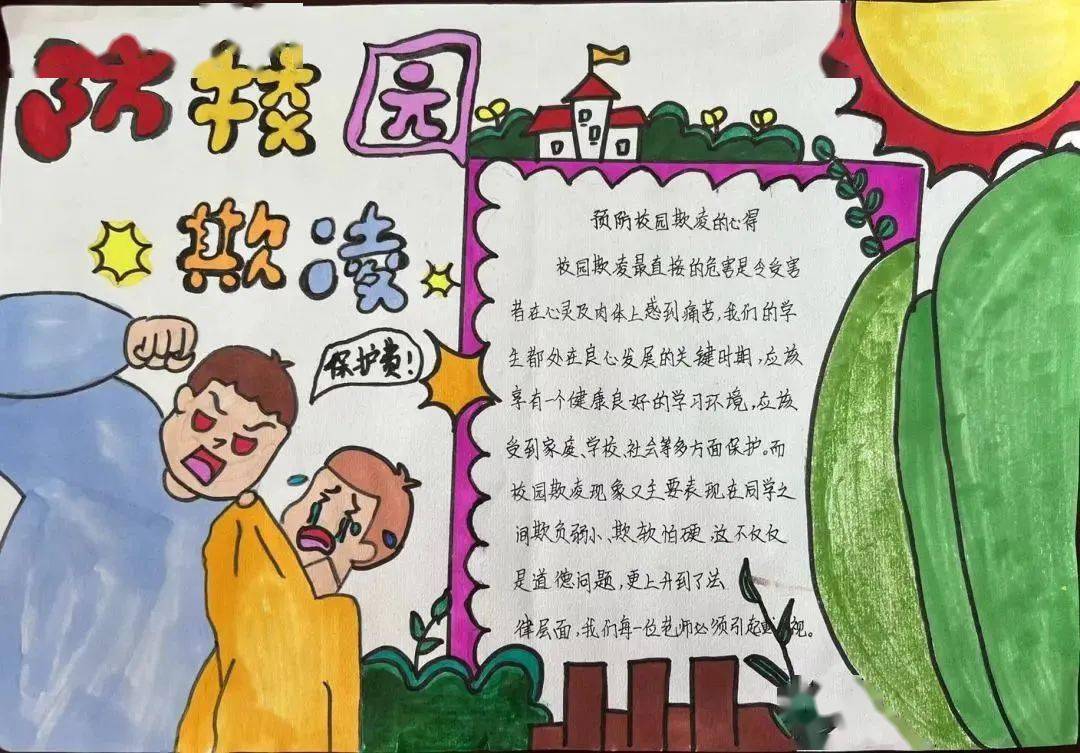 防校园
欺凌
保护费!
预防校园欺凌的心得
校园欺凌最直接的危害是令受害
者在心灵及肉体上感到痛苦,我们的学
生都处在良心发展的关键时期,应该
享有一个健康良好的学习环境,应该
受到家庭、学校、社会等多方面保护。而
校园欺凌现象又主要表现在同学之
间欺负弱小、欺软怕硬、这不仅仅
是道德问题,更上升到了法
律层面,我们每一位老师必须引起 视。